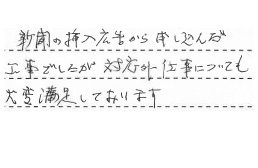 新聞の挿入広告から申し込んだ
工事でしたが 対応や仕事についても
大変満足しております